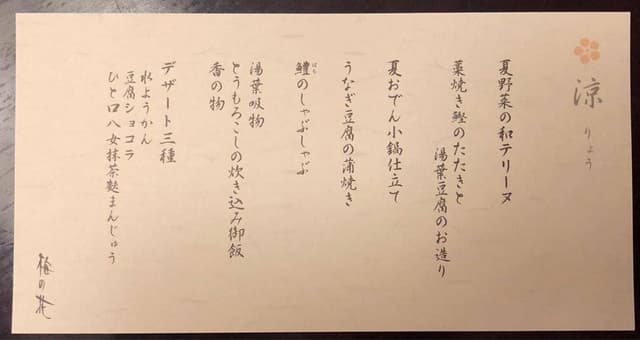 涼
りょう
夏野菜の和テリーヌ
藁焼き鰹のたたきと
湯葉豆腐のお造り
夏おでん小鍋仕立て
うなぎ豆腐の蒲焼き
鱧のしゃぶしゃぶ
はも
湯葉吸物
とうもろこしの炊き込み御飯
香の物
デザート三種
水ようかん
豆腐ショコラ
ひと口八女抹茶麩まんじゅう
梅の花